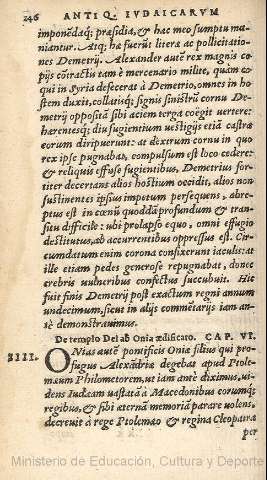 246 ANTIQ. IVDAICARVM
imponedaq; præsidia, & hac meo sumptu ma-
niantur. Atq; hæ fuerūt literæ ac pollicitatio-
nes Demetrij. Alexander aute rex magnis co
pijs cōtractis tam è mercenario milite, quàm eo
qui in Syria desecerat à Demetrio, omnes in ho
stem duxit, collatisq; signis sinistrū cornu De-
metrij oppositā sibi aciem terga coëgit vertere:
hærentesq; diu fugientium uestigijs etiā castra
eorum diripuerunt: at dextrum cornu in quo
rex ipse pugnabat, compulsum est loco cedere:
& reliquis effuse fugientibus, Demetrius for-
titer decertans alios hostium occidit, alios non
sustinentes ipsius impetum persequens, abre-
ptus est in cœnū quoddā profundum & tran-
situ difficile: ubi prolapso equo, omni effugio
destitutus, ab occurrentibus oppressus est. Cir
cumdatum enim corona confixerunt iaculis: at
ille etiam pedes generose repugnabat, donec
crebris vulneribus confectus succubuit. Hic
fuit finis Demetrij post exactum regni annum
undecimum, sicut in alijs commētarijs iam an-
tè demonstrauimus.
De templo Dei ab Onia ædificato. CAP. VI.
IIII. ONias autē pontificis Onia filius qui pro-
fugus Alexādriæ degebat apud Ptole-
mæum Philometorem, ut iam antè diximus, ui-
dens Iudæam uastatā à Macedonibus eorumq;
regibus, & sibi æternā memoriā parare uolens,
decreuit à rege Ptolemæo & regina Cleopatra
per
Ministerio de Educación, Cultura y Deporte